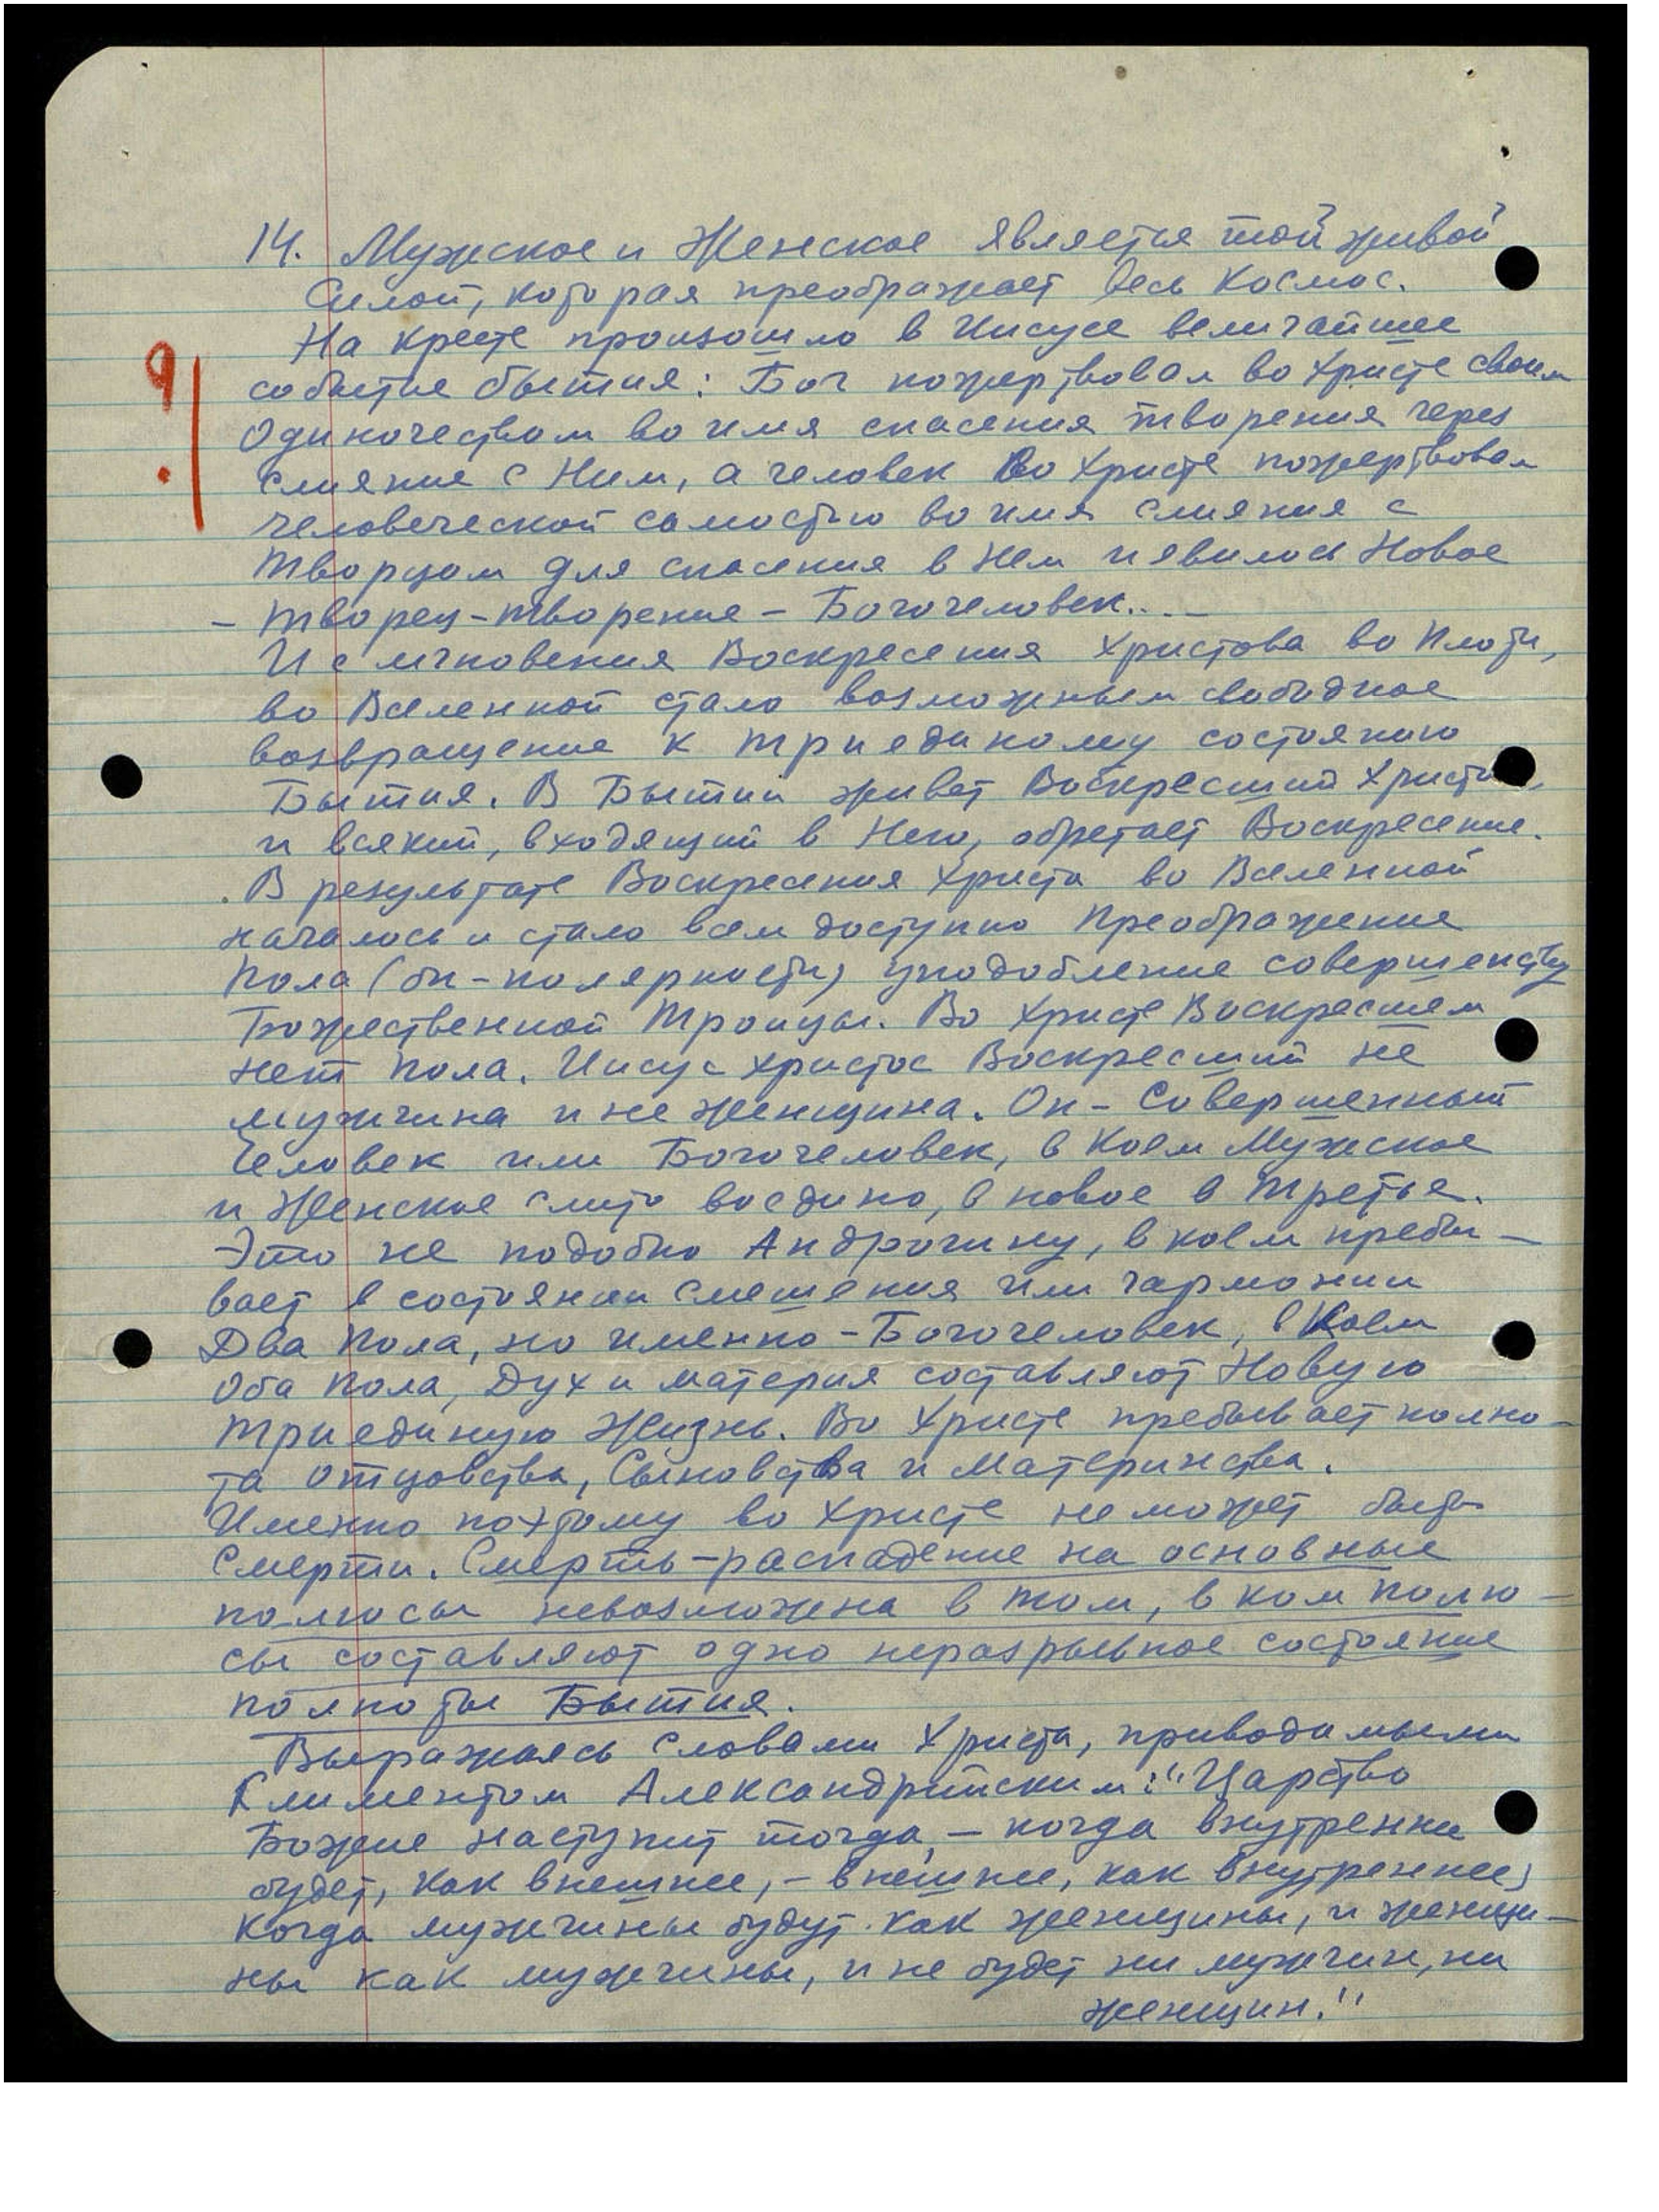 14. Мужское и Женское является той живой
Силой, которая преображает весь Космос.
На кресте произошло в Иисусе величайшее
событие бытия: Бог пожертвовал во Христе своим
Одиночеством во имя спасения творения через
слияние с Ним, а человек во Христе пожертвовал
человеческой самостью во имя слияния с
Творцом для спасения в Нем и явилось Новое
- Творец-творение - Богочеловек...-
И с мгновения Воскресения Христова во Плоти,
во Вселенной стало возможным свободное
возвращение к триединому состоянию
Бытия. В Бытии живет Воскресший Христос,
и всякий, входящий в Него, обретает Воскресение.
. В результате Воскресения Христа во Вселенной
началось и стало всем доступно Преображение
Пола (би-полярности) уподобление совершенству
Божественной Троицы. Во Христе Воскресшем
нет Пола. Иисус Христос Воскресший не
мужчина и не женщина. Он - Совершенный
Человек или Богочеловек, в Коем Мужское
и Женское слито воедино, в новое в Третье.
Это не подобно Андрогину, в коем пребы-
вает в состоянии смешения или гармонии
Два Пола, но именно - Богочеловек, в Коем
Оба Пола, Дух и материя составляют Новую
Триединую Жизнь. Во Христе пребывает полно-
та Отцовства, Сыновства и Материнства.
Именно поэтому во Христе не может быть
Смерти. Смерть - распадение на основные
полюсы невозможена в том, в ком полю-
сы составляют одно неразрывное состояние
полноты Бытия.
Выражаясь словами Христа, приводимыми
Климентом Александрийским: "Царство
Божие наступит тогда, - когда внутренне
будет, как внешнее, - внешнее, как внутреннее,
когда мужчины будут как женщины, и женщи-
ны как мужчины, и не будет ни мужчин, ни
женщин."